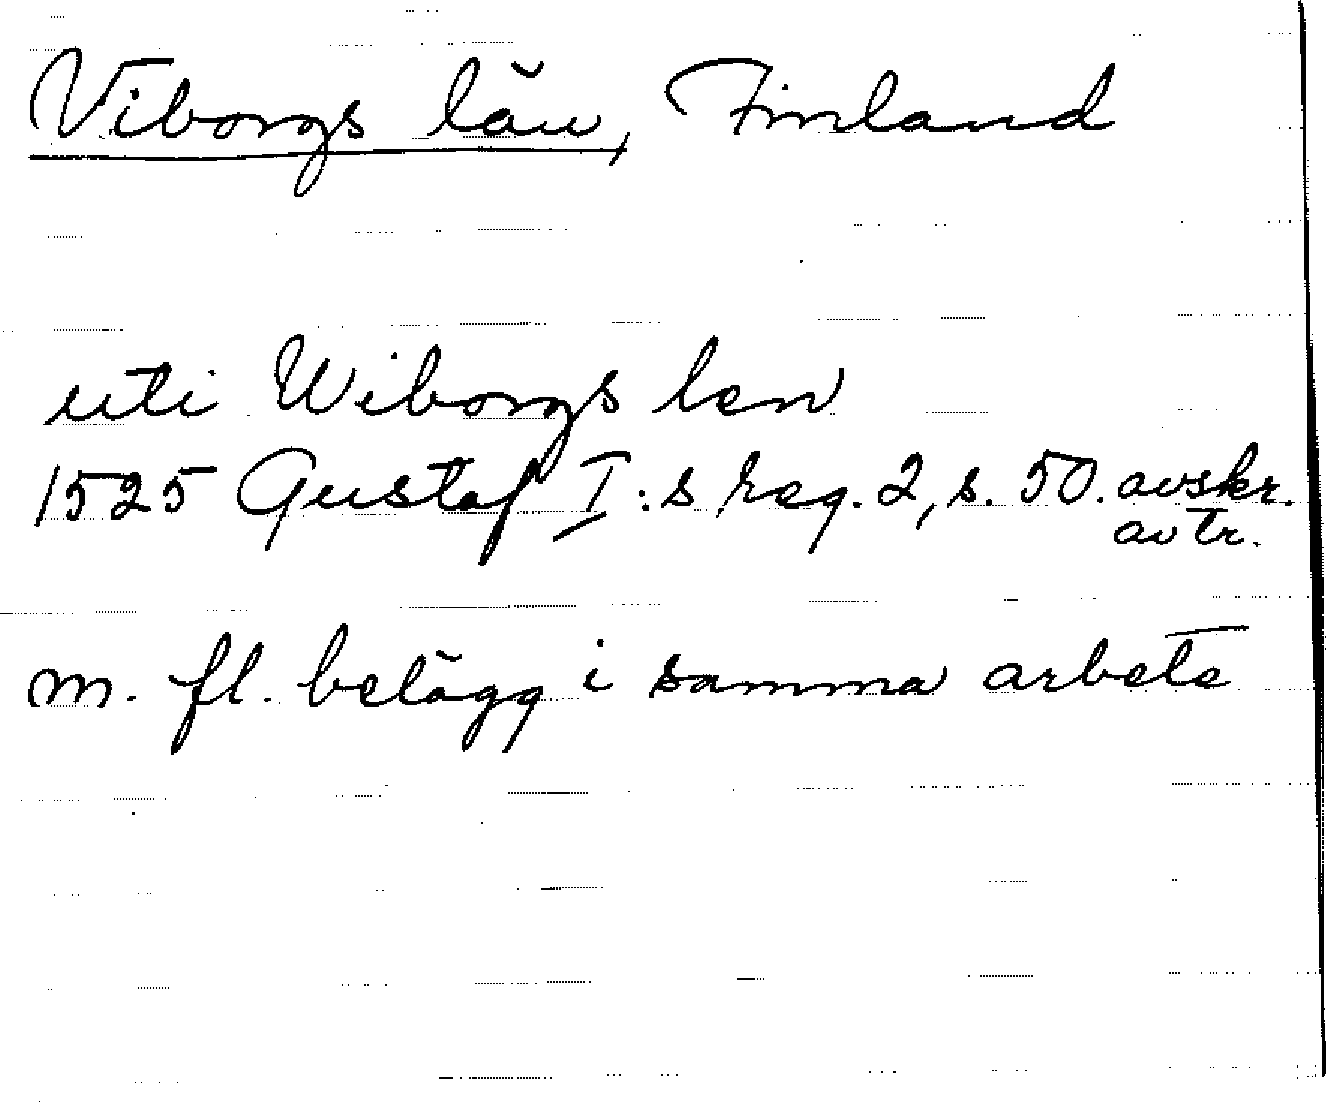 Viborgs län, Finland
uti Wiborgs len
1525 Gustaf I:s reg. 2, s. 50. avskr.
av tr.
m. fl. belägg i samma arbete